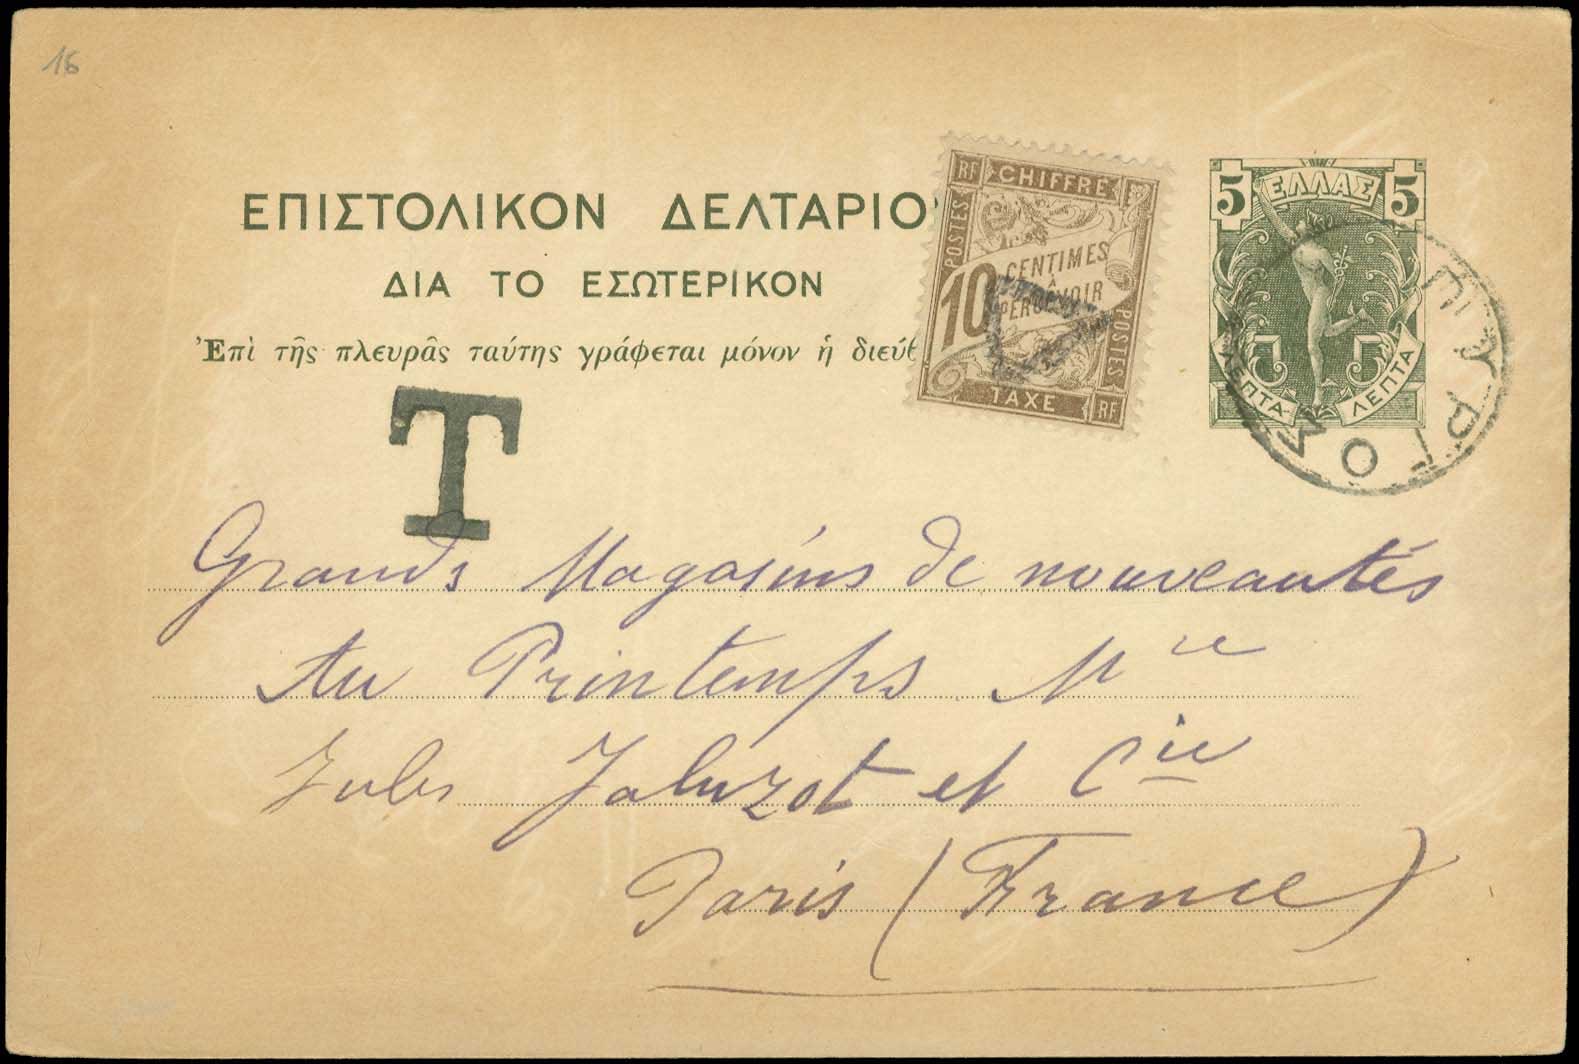 16
ΕΠΙΣΤΟΛΙΚΟΝ ΔΕΛΤΑΡΙΟ
ΔΙΑ ΤΟ ΕΣΩΤΕΡΙΚΟΝ
Ἐπὶ τῆς πλευρᾶς ταύτης γράφεται μόνον ἡ διεύθ
RF CHIFFRE
POSTES
10 CENTIMES
À
PERCEVOIR
POSTES
TAXE RF
5 ΕΛΛΑΣ 5
5 5
ΛΕΠΤΑ ΛΕΠΤΑ
ΠΥΡΓΟΣ
T
Grands Magasins de nouveautés
Au Printemps Mr
Jules Jaluzot et Cie
Paris (France)